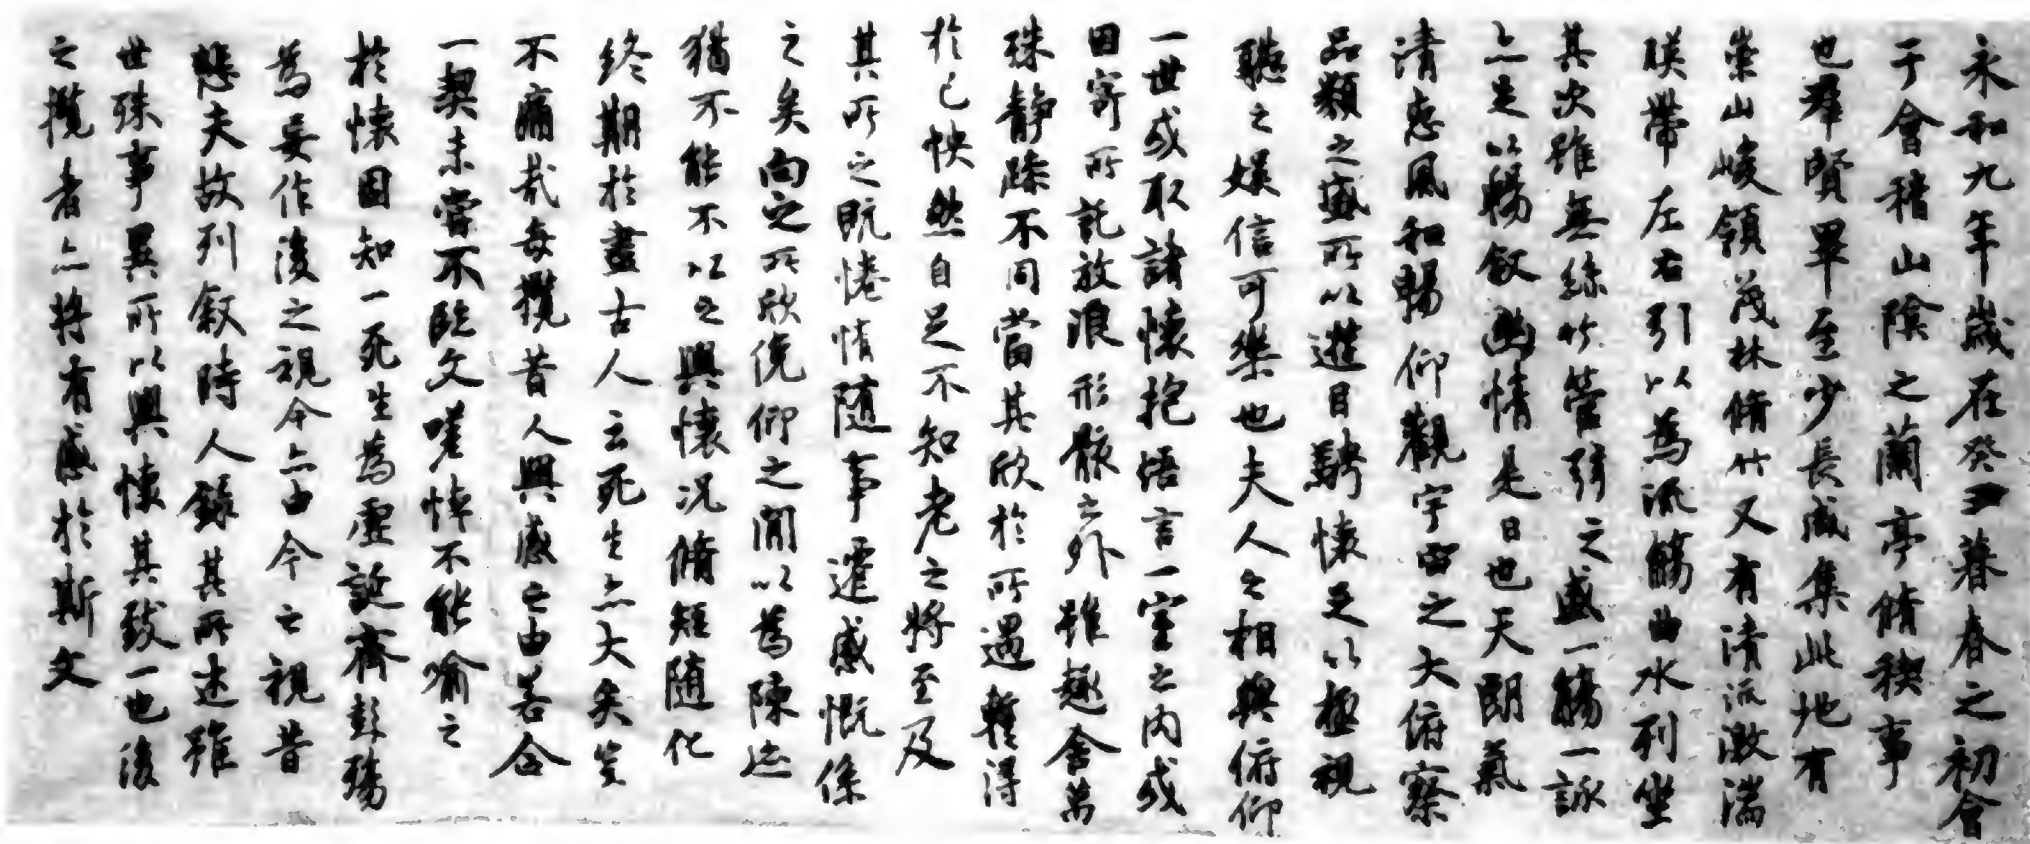 永和九年歲在癸丑暮春之初會
于會稽山陰之蘭亭脩稧事
也羣賢畢至少長咸集此地有
崇山峻領茂林脩竹又有清流激湍
暎帶左右引以為流觴曲水列坐
其次雖無絲竹管弦之盛一觴一詠
亦足以暢敘幽情是日也天朗氣
清惠風和暢仰觀宇宙之大俯察
品類之盛所以遊目騁懷足以極視
聽之娛信可樂也夫人之相與俯仰
一世或取諸懷抱悟言一室之內或
因寄所託放浪形骸之外雖趣舍萬
殊靜躁不同當其欣於所遇蹔得
於己怏然自足不知老之將至及
其所之既惓情隨事遷感慨係
之矣向之所欣俛仰之間以為陳迹
猶不能不以之興懷況脩短隨化
終期於盡古人云死生亦大矣豈
不痛哉每攬昔人興感之由若合
一契未嘗不臨文嗟悼不能喻之
於懷固知一死生為虛誕齊彭殤
為妄作後之視今亦由今之視昔
悲夫故列敘時人錄其所述雖
世殊事異所以興懷其致一也後
之攬者亦將有感於斯文